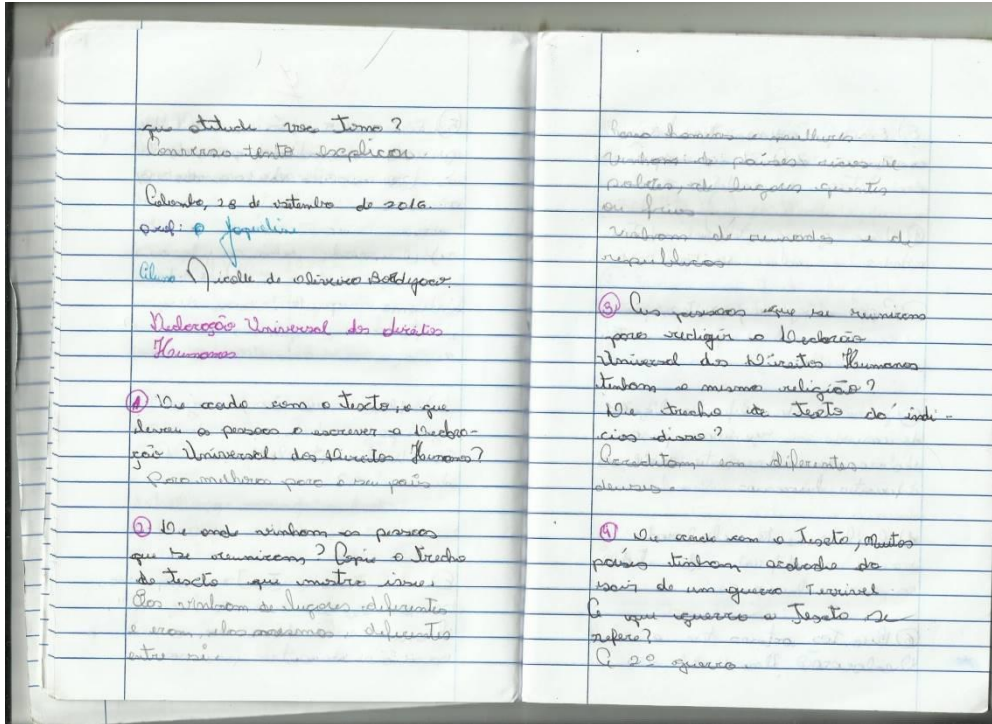 que atitude voce toma?
Converso tento explicar.
Colombo, 28 de setembro de 2016.
prof: Jaqueline
Aluna Nicolle de oliveira
Declaração Universal dos direitos
Humanos
① De acordo com o Texto, o que
levou as pessoas a escrever a Declara-
ção Universal dos Direitos Humanos?
Para melhora para o seu país
② De onde vinham as pessoas
que se reuniram? Copie o Trecho
do Texto que mostra isso.
Elas vinham de lugares diferentes
e eram elas mesmas, diferentes
entre si.
homens e mulheres
vinham de países ricos e
pobres, de lugares quentes
ou frios
vinham de e de
republicas
③ As pessoas que se reuniram
para redigir a Declaração
Universal dos Direitos Humanos
tinham a mesma religião?
Que trecho do Texto dá indí-
cios disso?
Acreditam em diferentes
deuses.
④ De acordo com o Texto, Muitos
países tinham acabado de
sair de um guerra Terrivel
A que guerra o Texto se
refere?
A 2º guerra.